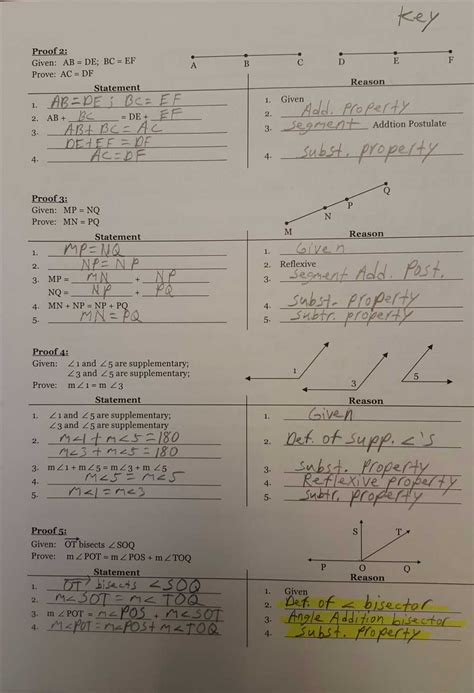 Key
Proof 2:
Given: AB = DE; BC = EF
Prove: AC = DF
A B C D E F
Statement Reason
1. AB = DE ; BC = EF 1. Given
2. AB + BC = DE + EF 2. Add. property
3. AB + BC = AC 3. segment Addtion Postulate
DE + EF = DF
4. AC = DF 4. subst. property
Proof 3:
Given: MP = NQ
Prove: MN = PQ
M N P Q
Statement Reason
1. MP = NQ 1. Given
2. NP = NP 2. Reflexive
3. MP = MN + NP 3. segment Add. Post.
NQ = NP + PQ
4. MN + NP = NP + PQ 4. subst. property
5. MN = PQ 5. subtr. property
Proof 4:
Given: ∠1 and ∠5 are supplementary;
∠3 and ∠5 are supplementary;
Prove: m∠1 = m∠3
1 3 5
Statement Reason
1. ∠1 and ∠5 are supplementary; 1. Given
∠3 and ∠5 are supplementary
2. m∠1 + m∠5 = 180 2. Def. of supp. ∠'s
m∠3 + m∠5 = 180
3. m∠1 + m∠5 = m∠3 + m∠5 3. subst. Property
4. m∠5 = m∠5 4. Reflexive property
5. m∠1 = m∠3 5. subtr. property
Proof 5:
Given: OT bisects ∠SOQ
Prove: m∠POT = m∠POS + m∠TOQ
S T
P O Q
Statement Reason
1. OT bisects ∠SOQ 1. Given
2. m∠SOT = m∠TOQ 2. Def. of ∠ bisector
3. m∠POT = m∠POS + m∠SOT 3. Angle Addition bisector
4. m∠POT = m∠POS + m∠TOQ 4. subst. property